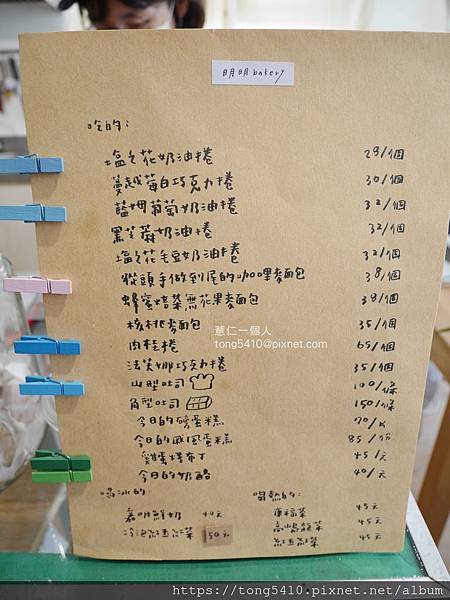 明明bakery
吃的:
塩之花奶油捲 28/個
蔓越莓白巧克力捲 30/個
蘭姆葡萄奶油捲 32/個
黑芝麻奶油捲 32/個
塩之花毛豆奶油捲 32/個
從頭手做到尾的咖哩麥面包 38/個
蜂蜜焙茶無花果麥面包 38/個
核桃麥面包 35/個
肉桂捲 65/個
法芙娜巧克力捲 35/個
山型吐司 100/條
角型吐司 150/條
今日的磅蛋糕 70/片
今日的戚風蛋糕 85/份
雞蛋烤布丁 45/元
今日的奶酪 40/元
喝冰的: 喝熱的:
嘉明鮮奶 40元 康福茶 45元
冷泡紅玉紅茶 50元 高山烏龍茶 45元
紅玉紅茶 45元
薏仁一個人
tong5410@pixnet.com
https://tong5410.pixnet.net/album